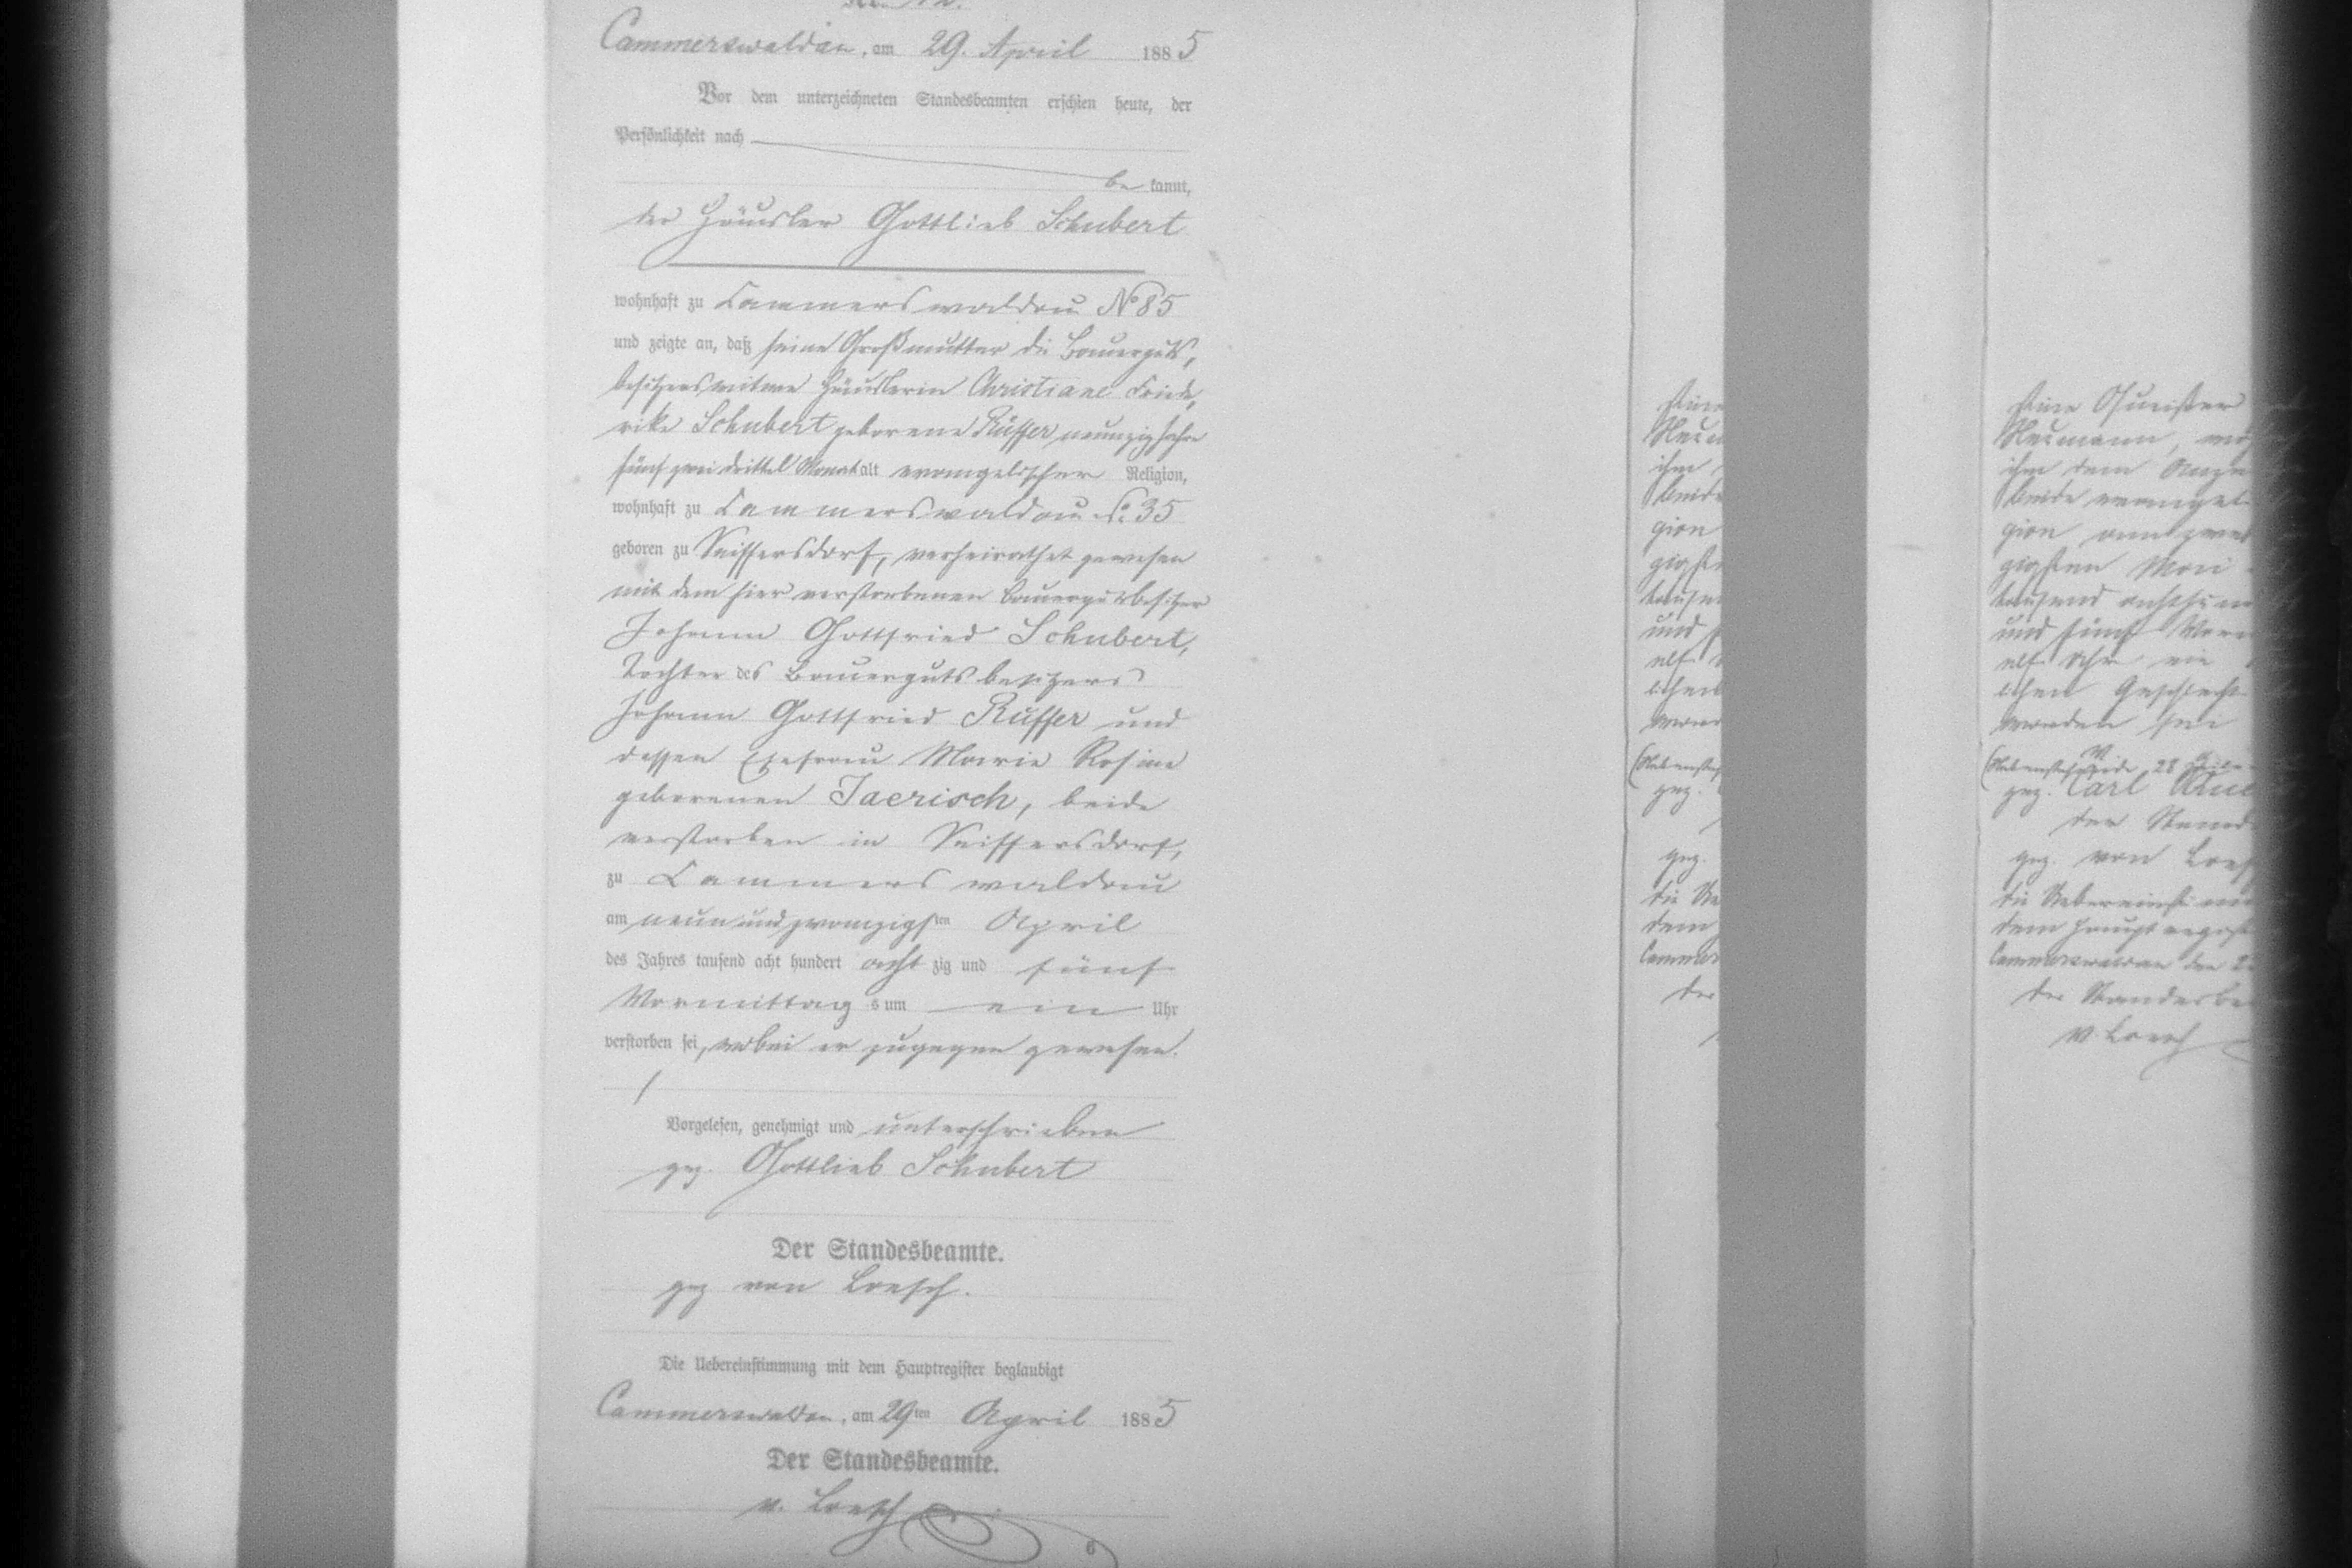 Cammerswaldau, am 29. April 1885
Vor dem unterzeichneten Standesbeamten erschien heute, der
Persönlichkeit nach
be kannt,
der Häusler Gottlieb Schubert
wohnhaft zu Cammerswaldau No 85
und zeigte an, daß seine Großmutter die Bauerguts,
besitzerswitwe Häuslerin Christiane Friede,
rike Schubert geborene Rüffer neunzig Jahre
fünf zwei drittel Monat alt evangelischer Religion,
wohnhaft zu Cammerswaldau No 35
geboren zu Seiffersdorf, verheirathet gewesen
mit dem hier verstorbenen Bauergutsbesitzer
Johann Gottfried Schubert,
Tochter des Bauergutsbesitzers
Johann Gottfried Rüffer und
dessen Ehefrau Marie Rosine
geborenen Jaerisch, beide
verstorben in Seiffersdorf,
zu Cammerswaldau
am neunundzwanzigsten April
des Jahres tausend acht hundert acht zig und fünf
Vormittag s um ein Uhr
verstorben sei, wobei er zugegen gewesen.
Vorgelesen, genehmigt und unterschrieben
gez. Gottlieb Schubert
Der Standesbeamte.
gez von Loesch.
Die Uebereinstimmung mit dem Hauptregister beglaubigt
Cammerswaldau, am 29ten April 1885
Der Standesbeamte.
v. Loesch
6
ihm
gion
und
gez.
gez.
dem
der
Neumann,
ihm dem
beide
gion
gigsten Mai
tausend
und fünf
elf Uhr ein
lichen Geschlecht
worden sei
28
gez. Carl
der
gez. von
die
dem Hauptregist
Cammerswaldau den
der Standesbe
v. Loesch